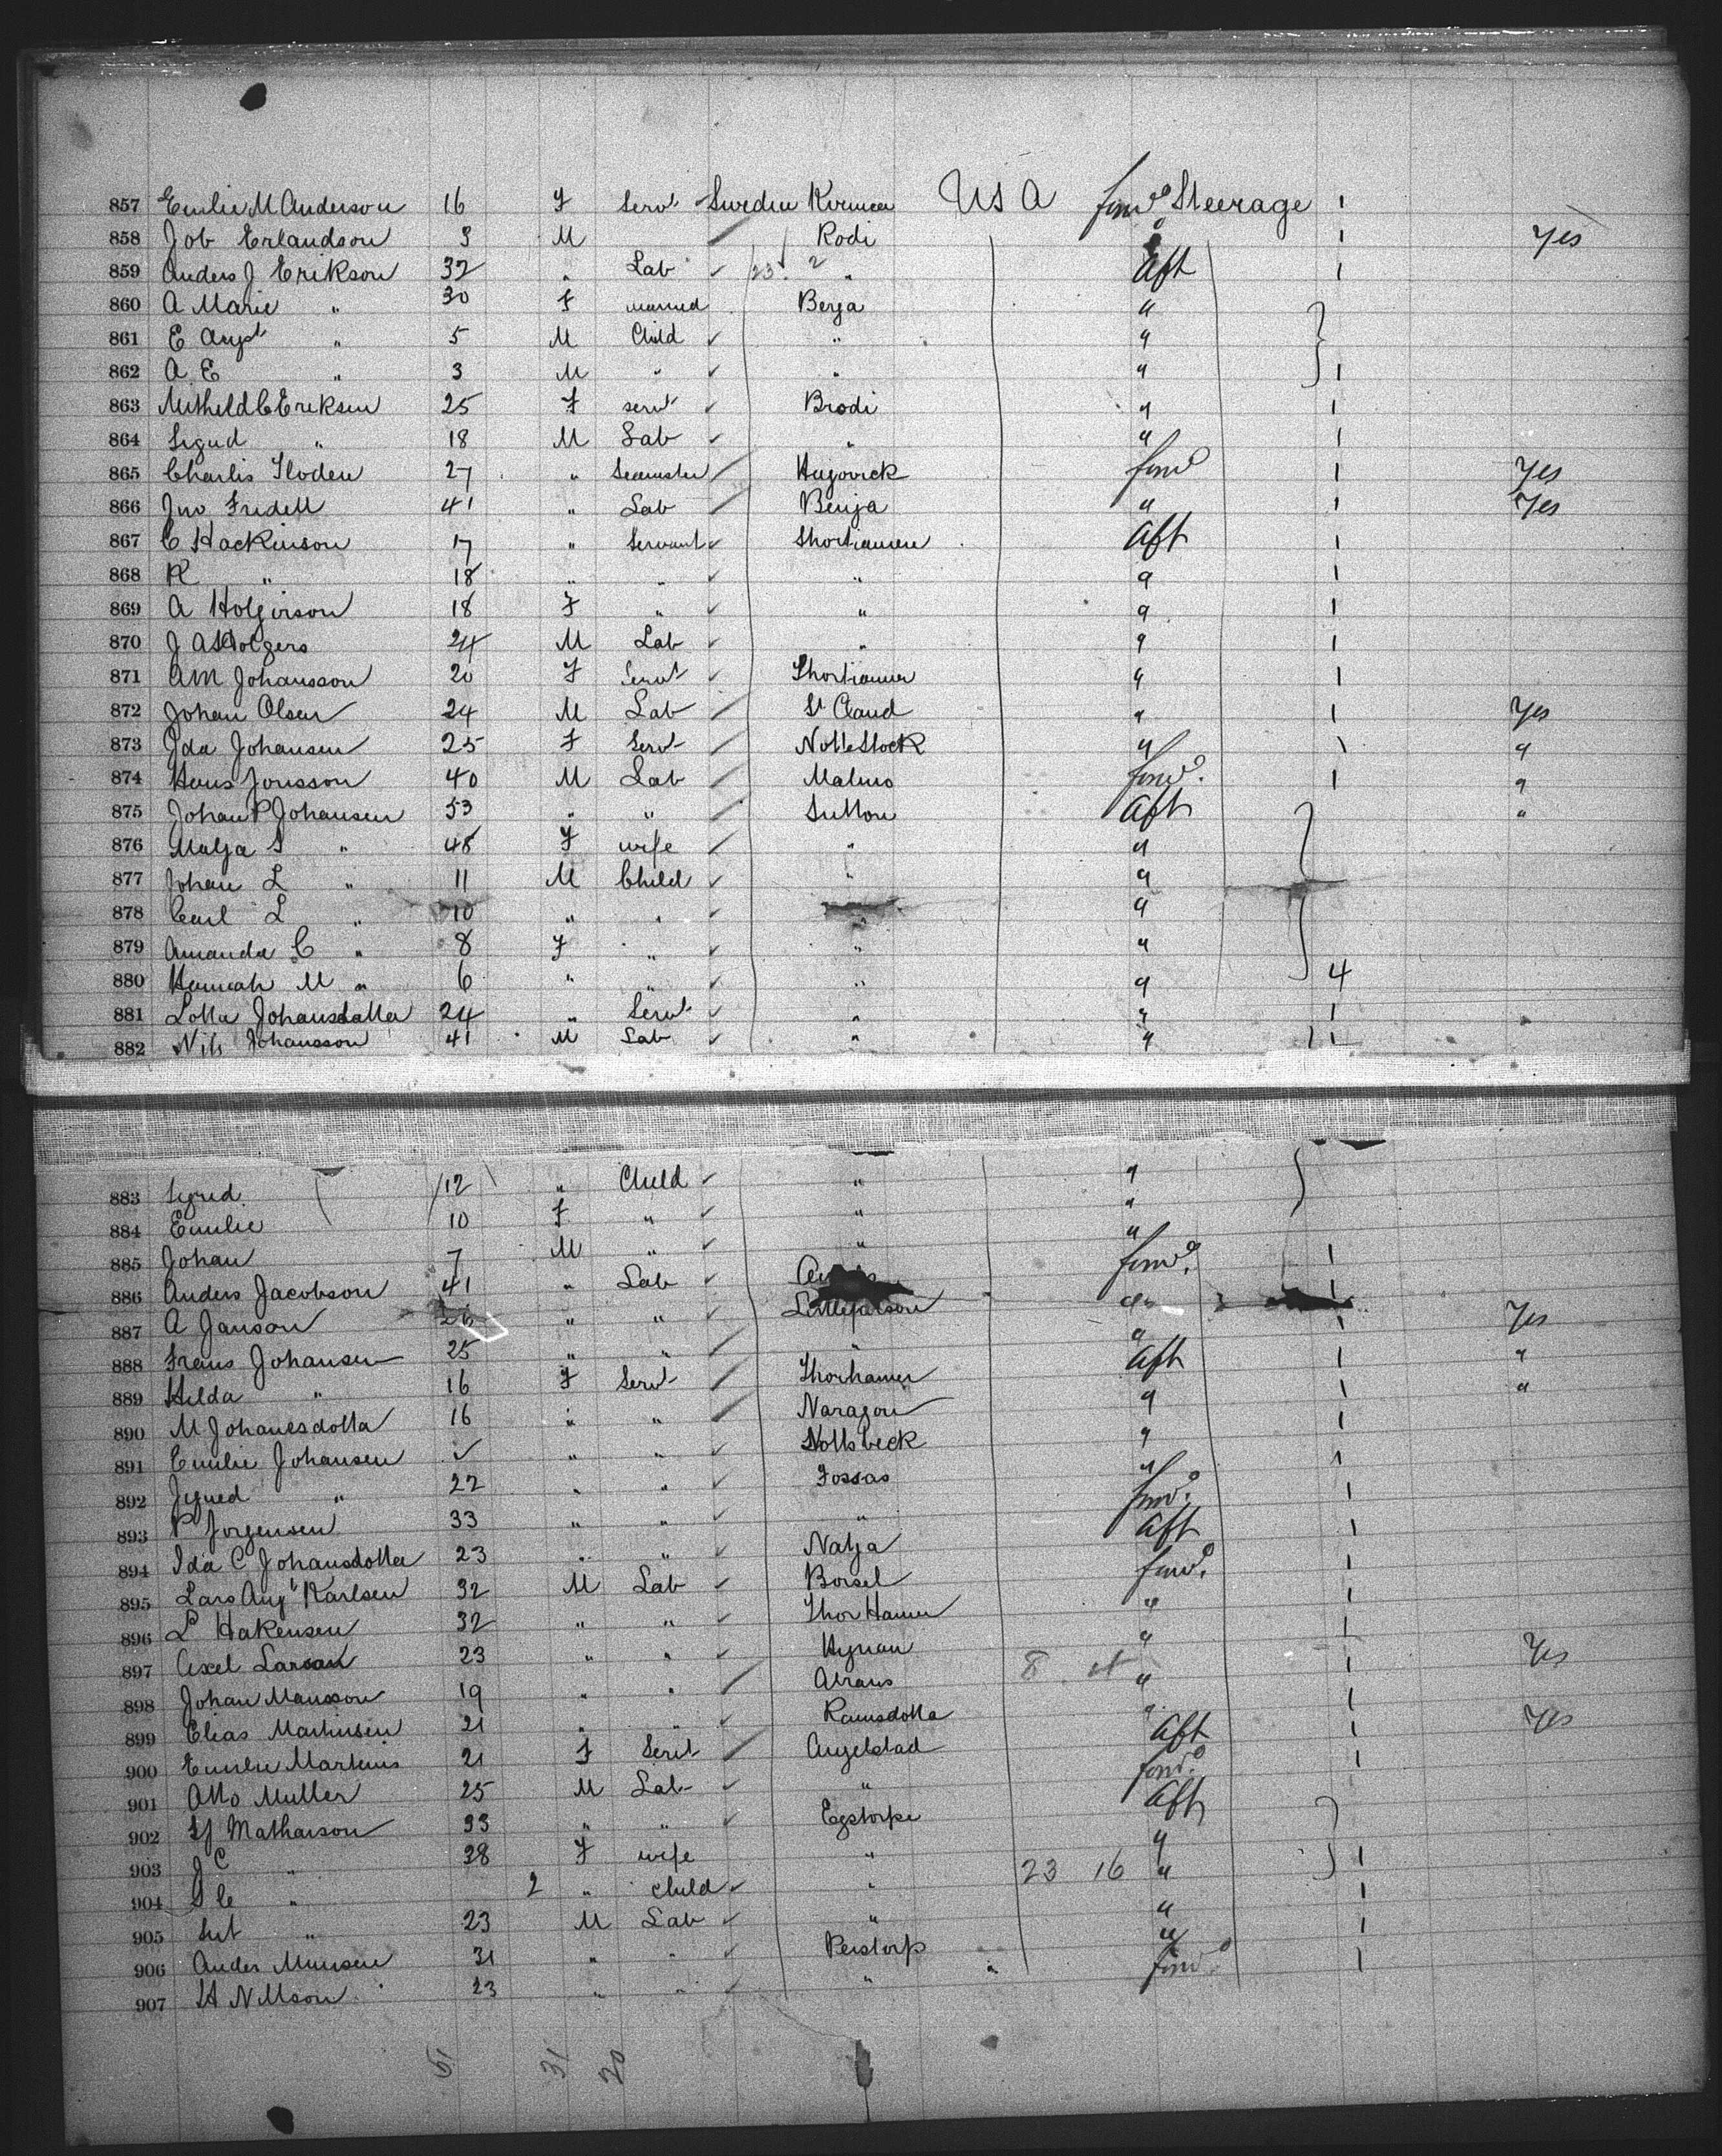 857 Emilie M Anderson 16 F Serv't Sweden USA forw'd Steerage 1
858 Job Erlandson 9 M Rodi " 1 Yes
859 Anders J Erikson 32 " Lab 23 2 " Aft 1
860 A Marie " 30 F married Berga "
861 E Aug't " 5 M Child " "
862 A E " 3 M " " " 1
863 25 F serv't Brodi " 1
864 Sigud " 18 M Lab " " 1
865 Charlis Floden 27 " Hugovick forw'd 1 Yes
866 Jno Fridell 41 " Lab Benja " 1 Yes
867 C Hackinson 17 " Servant Aft 1
868 K " 18 " " " " 1
869 A Holgerson 18 F " " " 1
870 J A Holgers 24 M Lab " " 1
871 A M Johansson 20 F Serv't " 1
872 Johan Olsen 24 M Lab St Claud " 1 Yes
873 Ida Johansen 25 F Serv't " 1 "
874 Hans Jonsson 40 M Lab Malmo forw'd 1 "
875 Johan P Johansen 53 " " Sutton Aft "
876 Malja S " 48 F wife " "
877 Johan L " 11 M Child " "
878 Carl L " 10 " " " "
879 Amanda C " 8 F " " "
880 Hannah M " 6 " " " " 4
881 Lotta Johansdatter 24 " Serv't " " 1
882 Nils Johansson 41 M Lab " " 1
883 Sigrid 12 " Child " "
884 Emilie 10 F " " "
885 Johan 7 M " " "
886 Anders Jacobson 41 " Lab forw'd 1
887 A Janson 26 " " " 1
888 Frans Johansen 25 " " " " 1 Yes
889 Hilda " 16 F Serv't Thorhamer Aft 1 "
890 M Johanesdotta 16 " " Naragon " 1 "
891 Emilie Johansen " " Nottsbeck " 1
892 " 22 " " Fossas " 1
893 P Jorgensen 33 " " " forw'd 1
894 Ida C Johansdotta 23 " " Natja Aft 1
895 Lars Aug't Karlsen 32 M Lab Borsel forw'd 1
896 L Hakensen 32 " " Thor Hamer " 1
897 Axel Larsan 23 " " Hynan " 1
898 Johan Mansson 19 " " Abrans 8 " 1 Yes
899 Elias Martinsen 21 " " Ramsdotta " 1
900 Emilie Martinis 21 F Serv't Angelstad Aft 1 Yes
901 Otto Muller 25 M Lab " forw'd 1
902 Mathaison 33 " " Egstorpe Aft
903 J C " 28 F wife " "
904 S C " 2 " child " 23 16 " 1
905 " 23 M Lab " " 1
906 Ander Munsen 31 " " Perstorp " 1
907 H Nilson 23 " " " forw'd 1
51 31 20